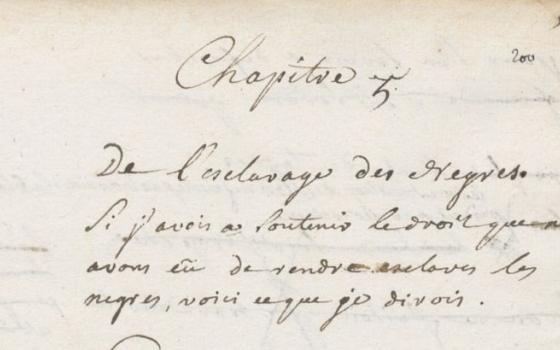 200
Chapitre 5
De l'esclavage des Negres.
Si j'avois a soutenir le droit que n
avons eû de rendre esclaves les
negres, voici ce que je dirois.